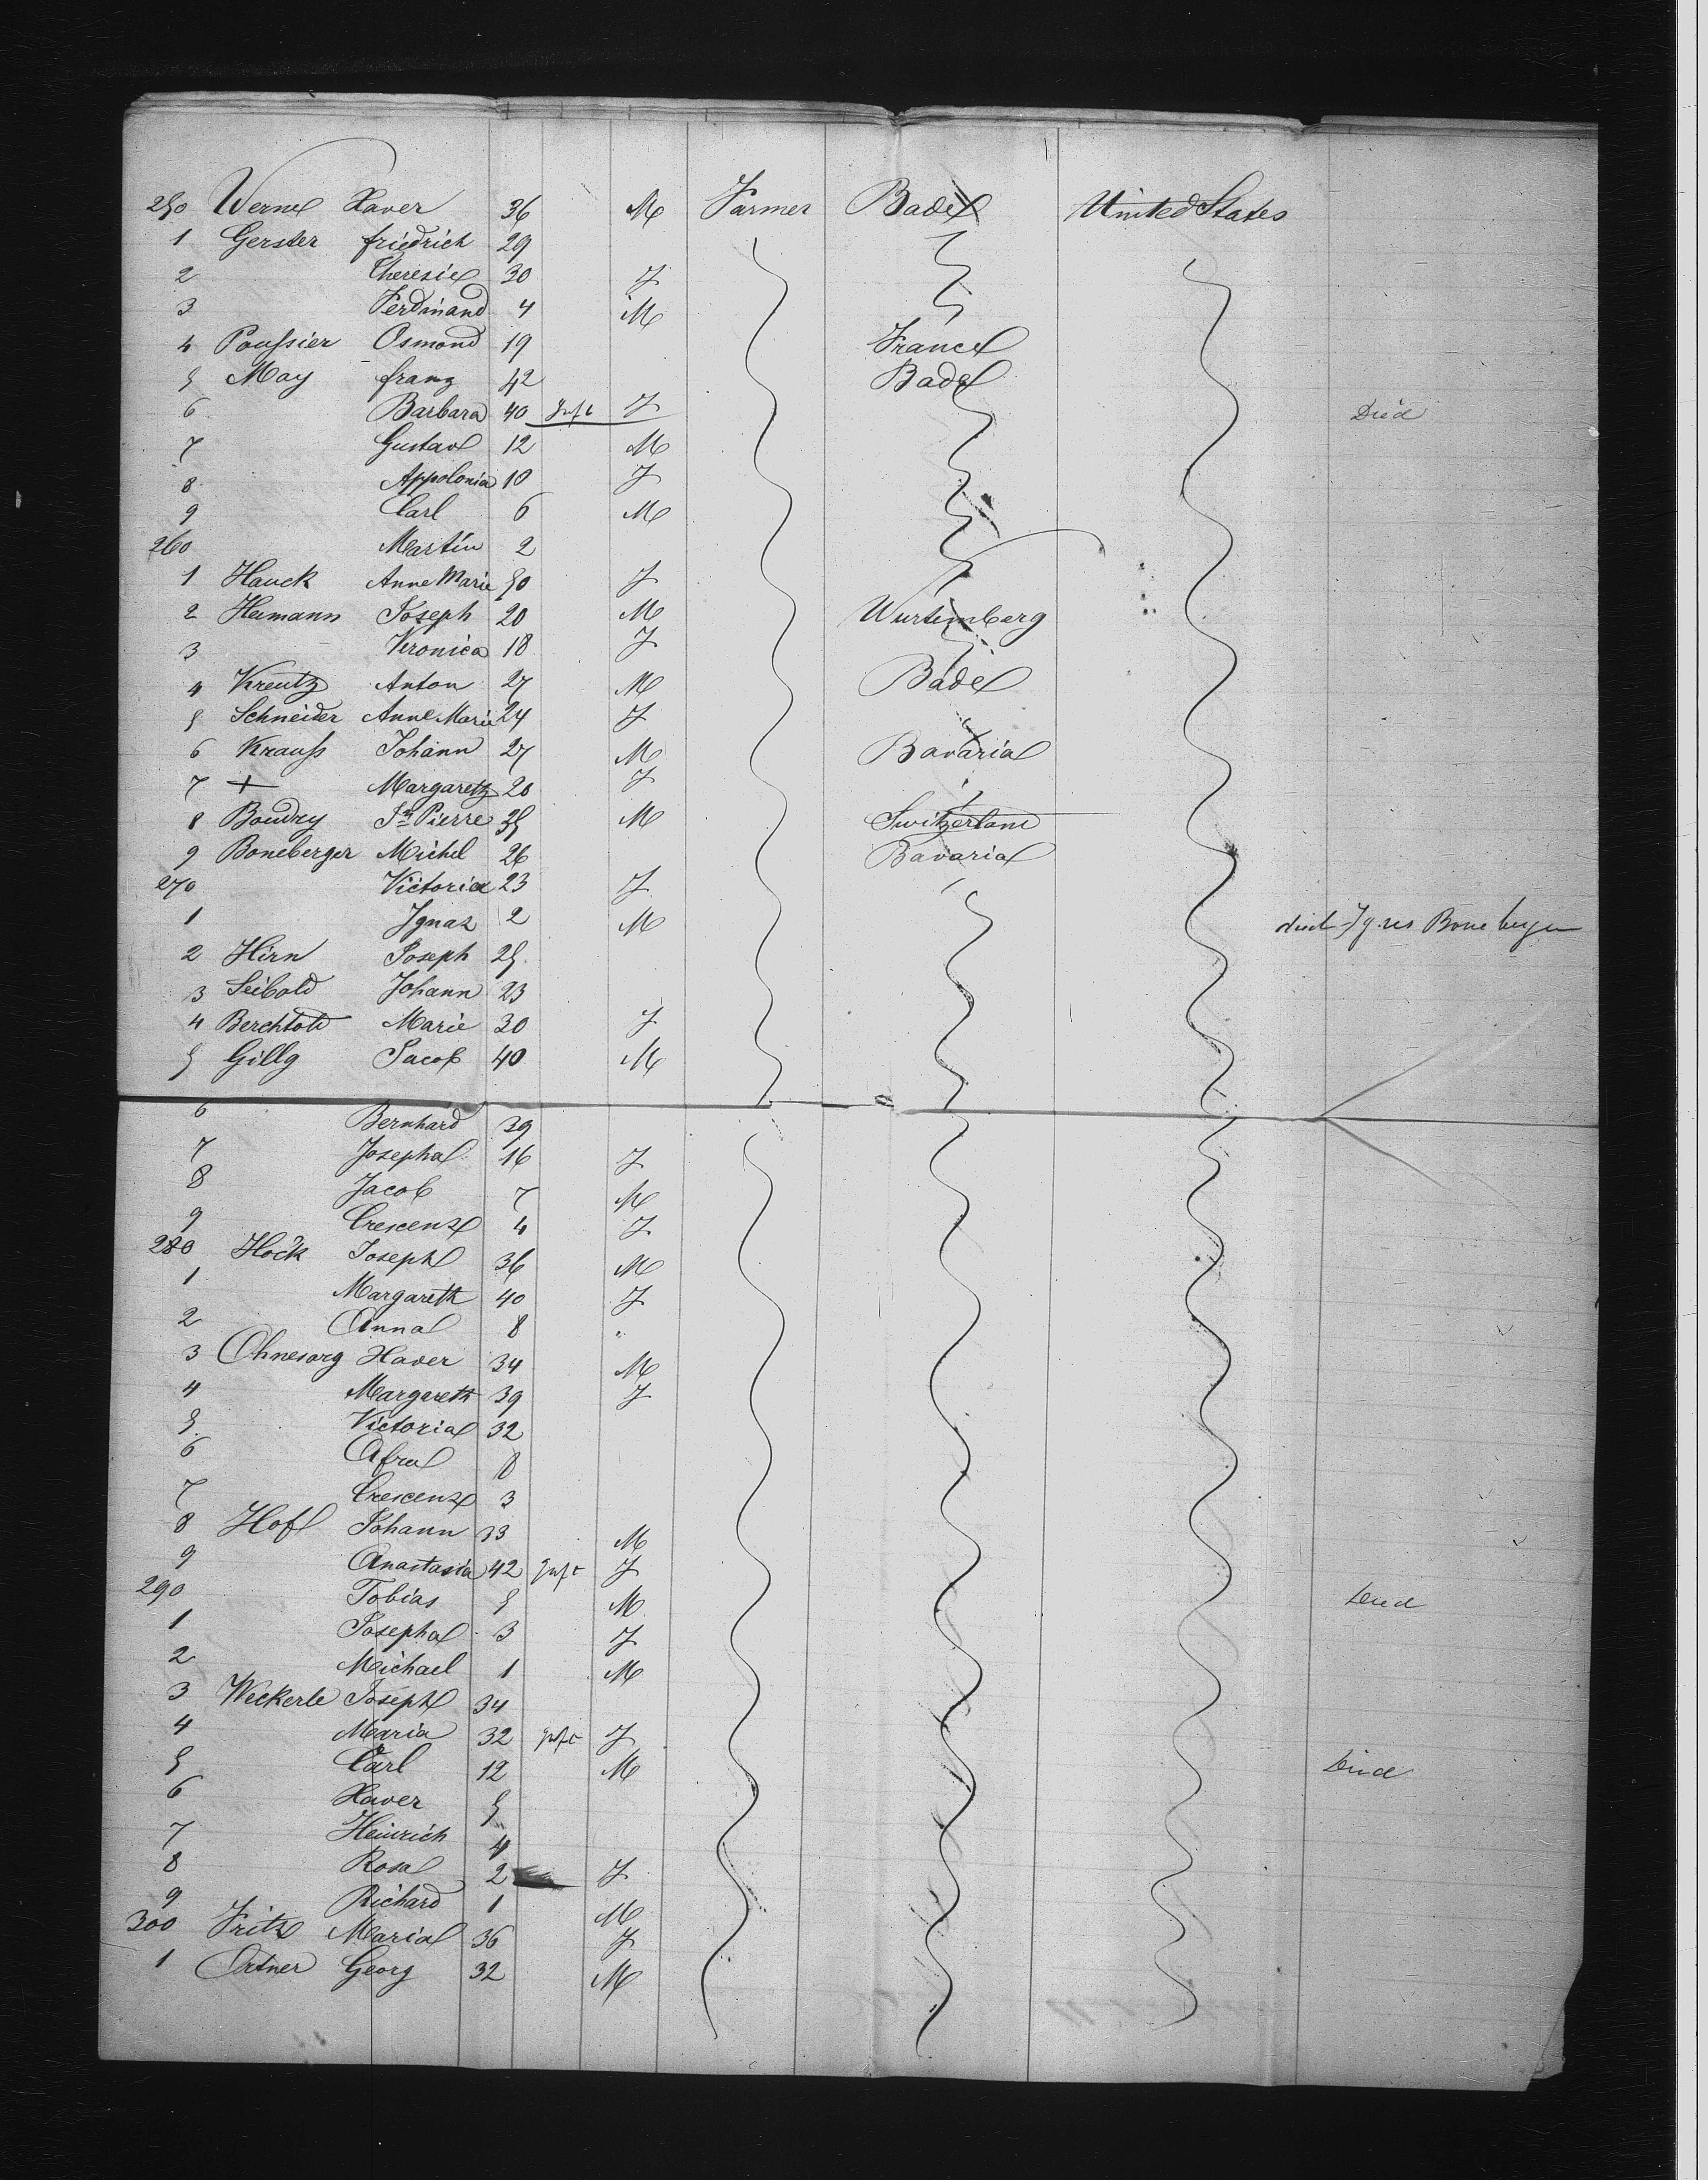 250 Werne Xaver 36 M Farmer Bade United States
1 Gerster friedrich 29
2 Theresie 30 F
3 Ferdinand 4 M
4 Poussier Osmond 19 France
5 May franz 42 Bade
6 Barbara 40 Inft F Died
7 Gustav 12 M
8 Appolonia 10 F
9 Carl 6 M
260 Martin 2
1 Hauck Anne Marie 50 F
2 Heimann Joseph 20 M Wurtemberg
3 Veronica 18 F
4 Kreutz Anton 27 M Bade
5 Schneider Anne Marie 24 F
6 Krauss Johann 27 M Bavaria
7 + Margareth 20 F
8 Boudry Jn Pierre M Switzerland
9 Boneberger Michel 26 Bavaria
270 Victoria 23 F
1 Ignaz 2 M died Boneberger
2 Hirn Joseph 25
3 Seibold Johann 23
4 Berchtold Marie 30 F
5 Gillg Jacob 40 M
6 Bernhard 39
7 Josepha 16 F
8 Jacob 7 M
9 Crescenz 4 F
280 Hock Joseph 36 M
1 Margareth 40 F
2 Anna 8 "
3 Ohnesorg Xaver 34 M
4 Margareth 39 F
5 Victoria 32
6 Afra 8
7 Crescenz 3
8 Hofl Johann 33 M
9 Anastasia 42 Inft F
290 Tobias 5 M Died
1 Josepha 3 F
2 Michael 1 M
3 Weckerle Joseph 34
4 Maria 32 Inft F
5 Carl 12 M Died
6 Xaver 5
7 Heinrich 4
8 Rosa 2 F
9 Richard 1 M
300 Fritz Maria 36 F
1 Ortner Georg 32 M